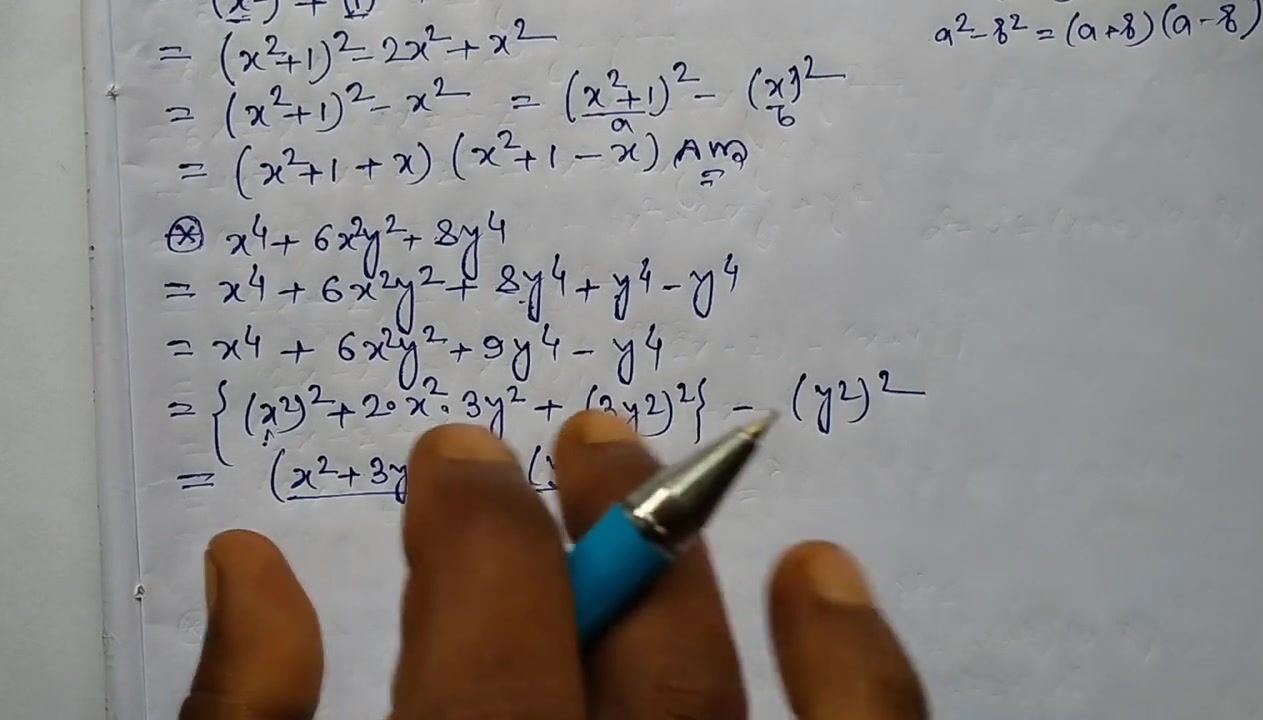 a² - b² = (a + b) (a - b)
= (x² + 1)² - 2x² + x²
= (x² + 1)² - x² = (x² + 1)² - (x)²
a b
= (x² + 1 + x) (x² + 1 - x) Ans
⊛ x⁴ + 6x²y² + 8y⁴
= x⁴ + 6x²y² + 8y⁴ + y⁴ - y⁴
= x⁴ + 6x²y² + 9y⁴ - y⁴
= {(x²)² + 2·x²·3y² + (3y²)²} - (y²)²
= (x² + 3y